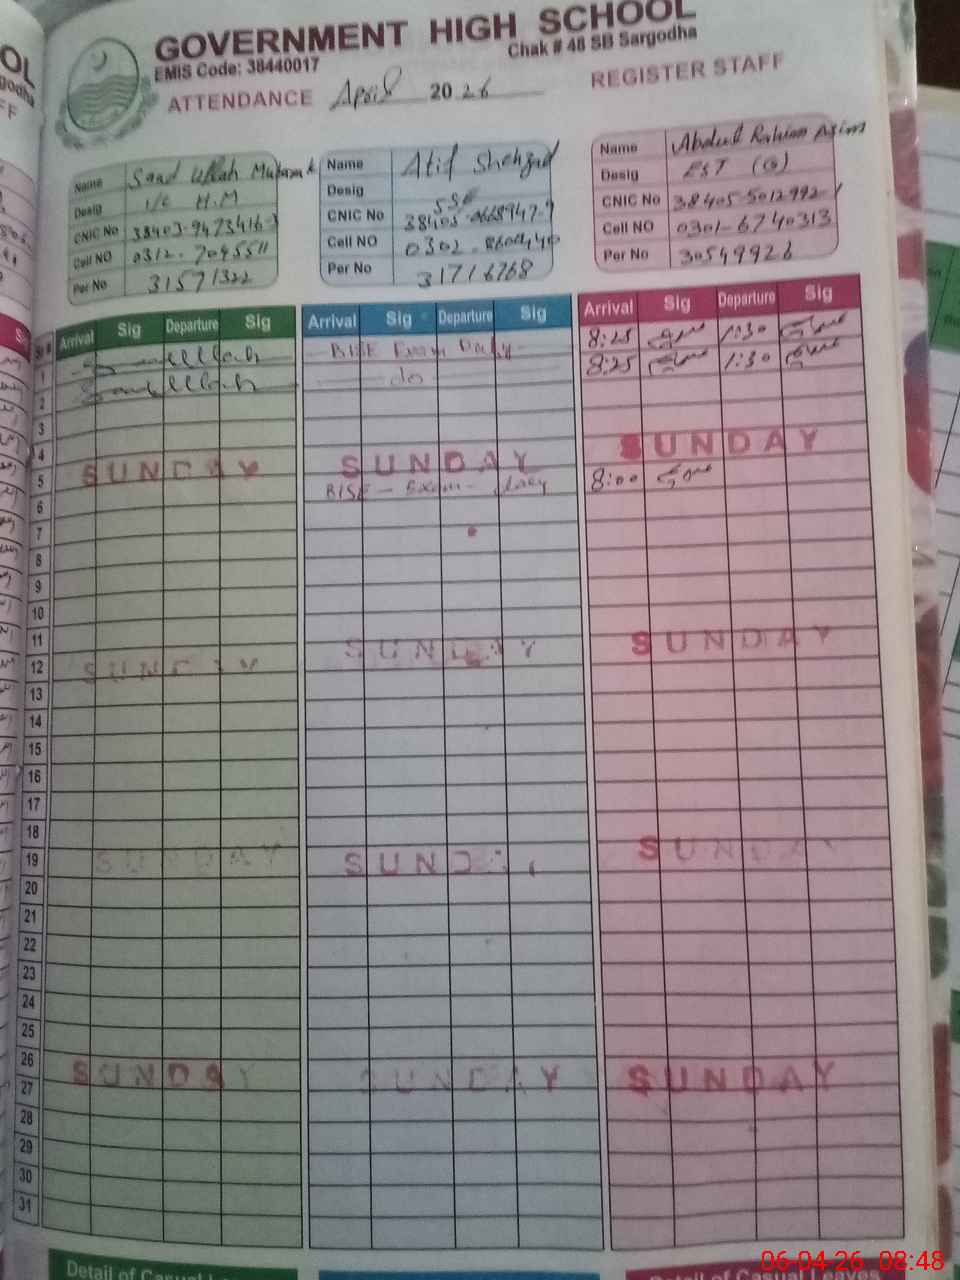 GOVERNMENT HIGH SCHOOL
EMIS Code: 38440017
Chak # 48 SB Sargodha
ATTENDANCE April 2026
REGISTER STAFF
Name
Desig I/C H.M
CNIC No 38403-9473416-3
Cell NO 0312-7095511
Per No 31571322
Name Atif Shehzad
Desig SSE
CNIC No
Cell NO
Per No 31716768
Name Abdul Rahim Asim
Desig EST (G)
CNIC No 38405-5012992-1
Cell NO 0301-6740313
Per No 30549926
Arrival Sig Departure Sig
Arrival Sig Departure Sig
Arrival Sig Departure Sig
BISE Exam Duty
8:25 1:30
1
do
8:25 1:30
2
3
4
SUNDAY SUNDAY SUNDAY
5
BISE - Exam - Duty
8:00
6
7
8
9
10
11
SUNDAY SUNDAY SUNDAY
12
13
14
15
16
17
18
19
SUNDAY SUNDAY SUNDAY
20
21
22
23
24
25
26
SUNDAY SUNDAY SUNDAY
27
28
29
30
31
06-04-26 08:48